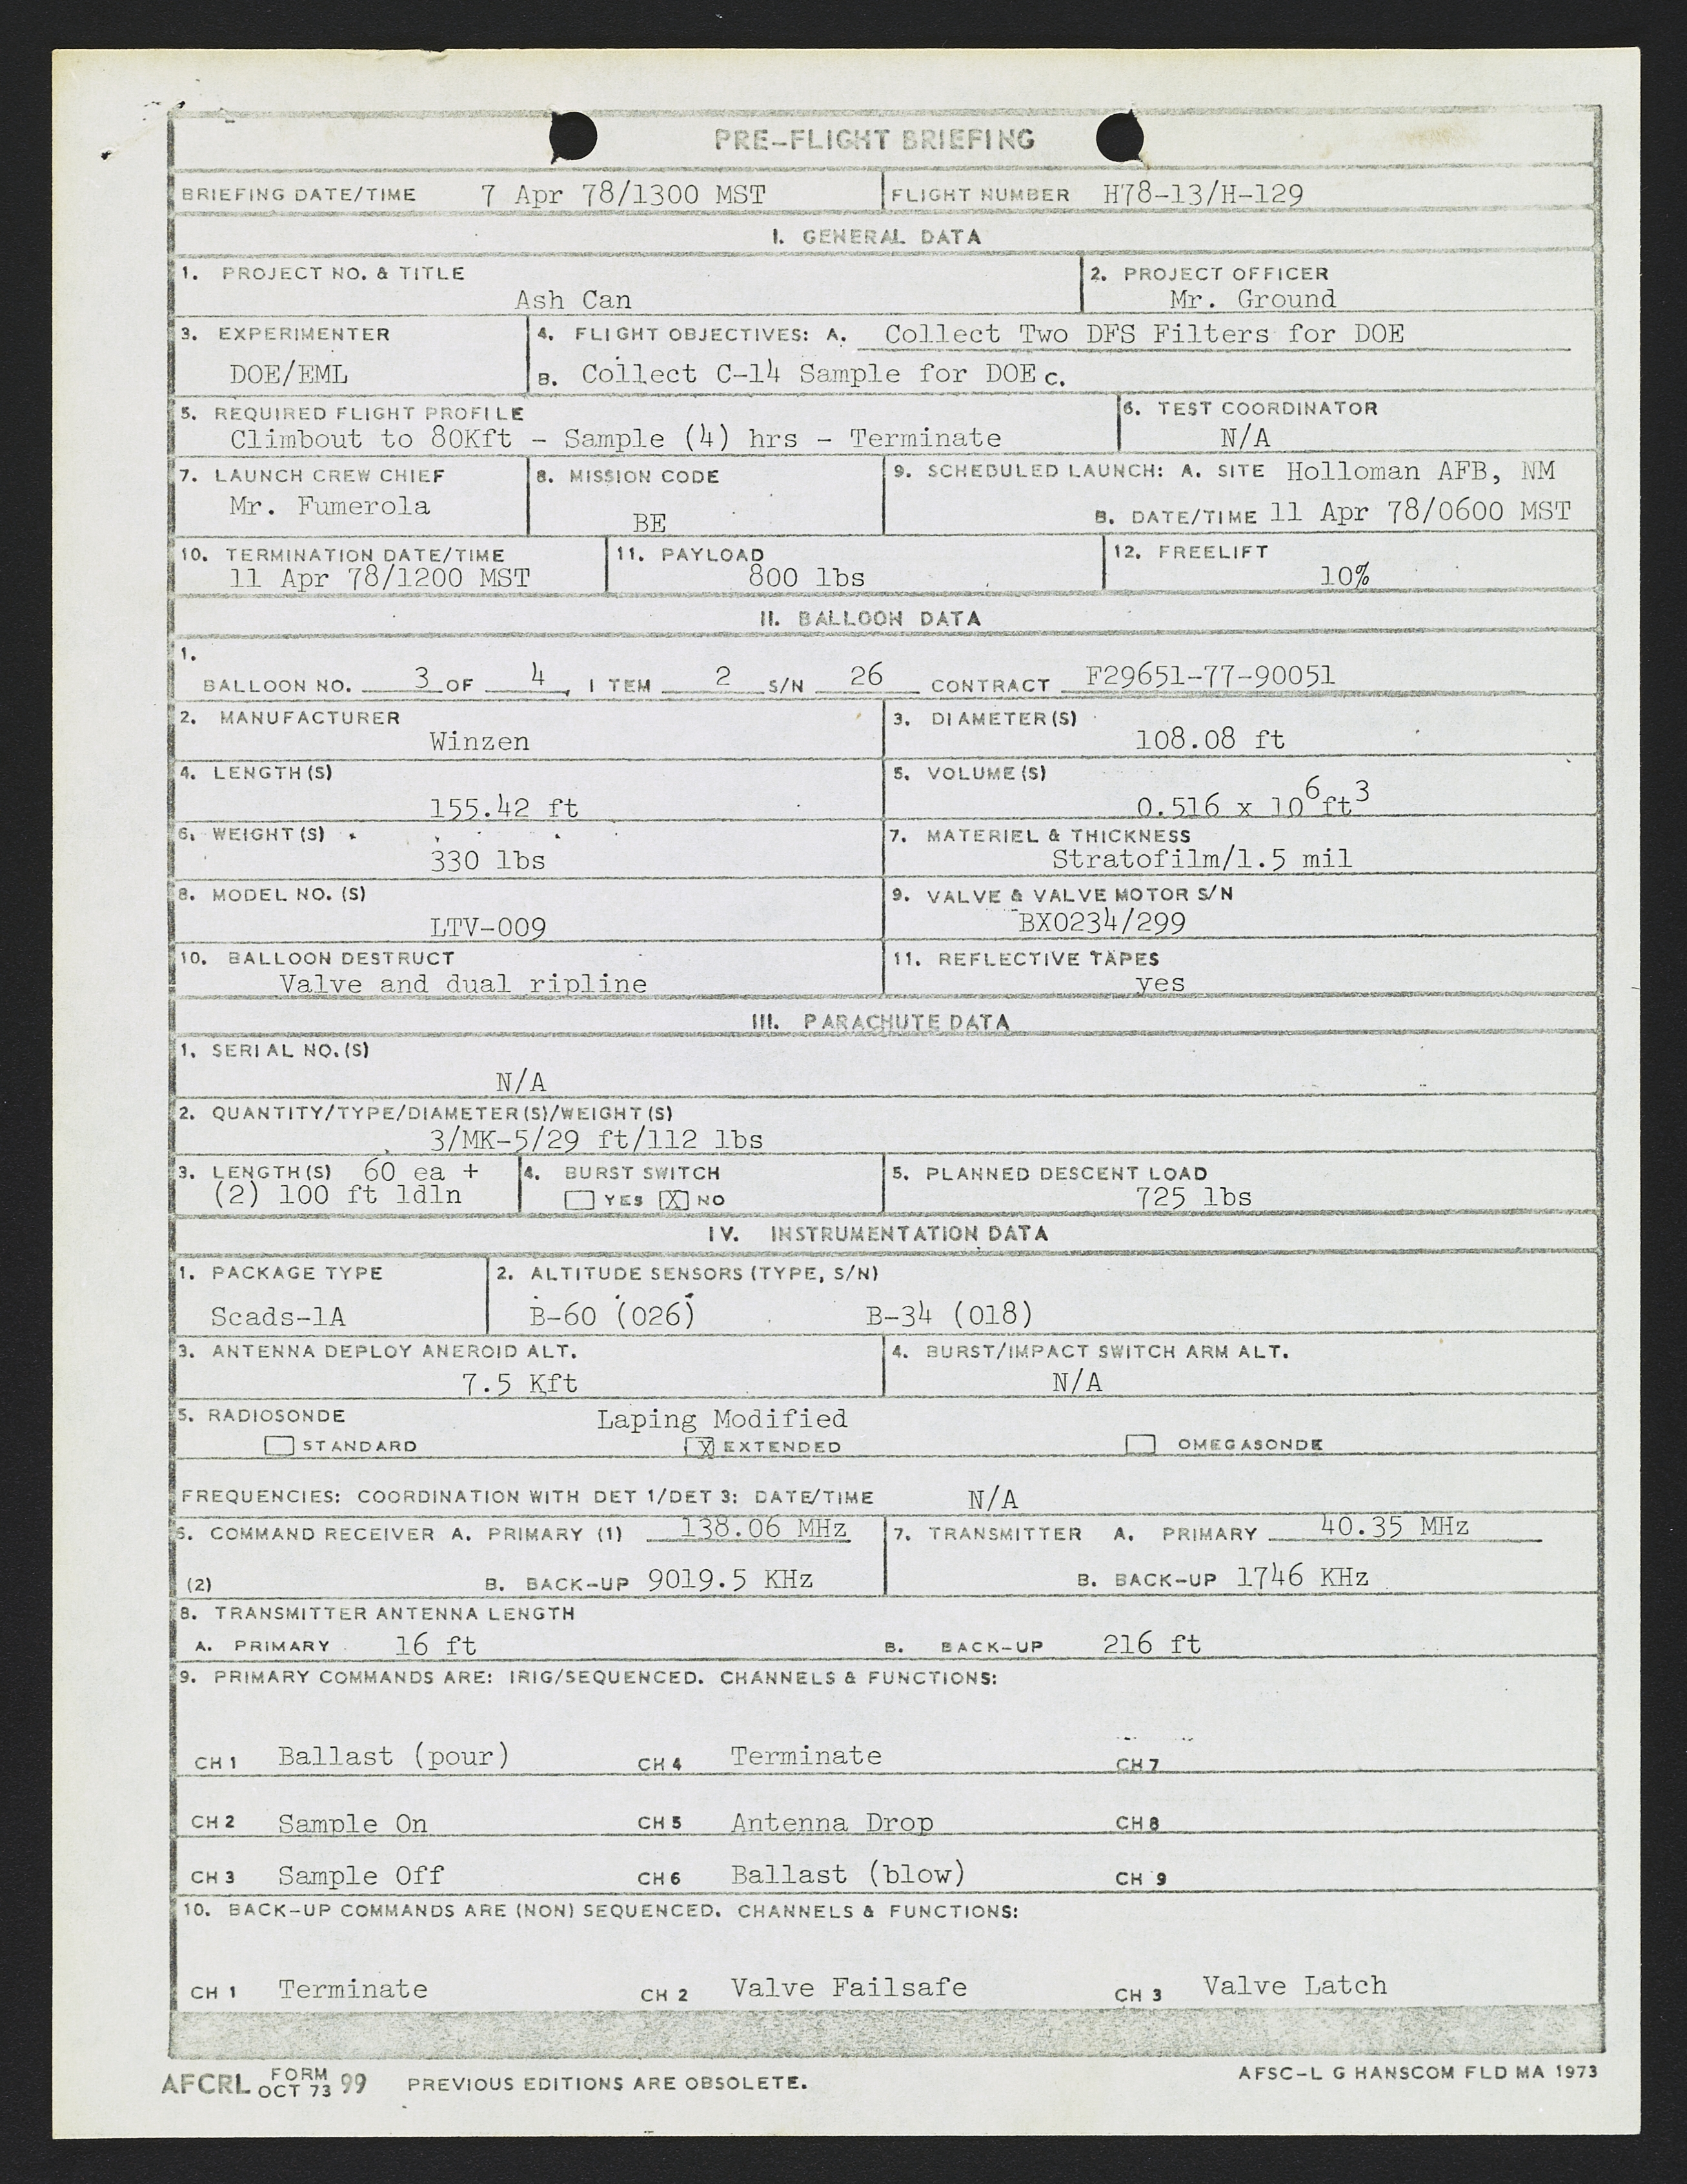 PRE-FLIGHT BRIEFING
BRIEFING DATE/TIME 7 Apr 78/1300 MST FLIGHT NUMBER H78-13/H-129
I. GENERAL DATA
1. PROJECT NO. & TITLE 2. PROJECT OFFICER
Ash Can Mr. Ground
3. EXPERIMENTER 4. FLIGHT OBJECTIVES: A. Collect Two DFS Filters for DOE
DOE/EML B. Collect C-14 Sample for DOE C.
5. REQUIRED FLIGHT PROFILE 6. TEST COORDINATOR
Climbout to 80Kft - Sample (4) hrs - Terminate N/A
7. LAUNCH CREW CHIEF 8. MISSION CODE 9. SCHEDULED LAUNCH: A. SITE Holloman AFB, NM
Mr. Fumerola BE B. DATE/TIME 11 Apr 78/0600 MST
10. TERMINATION DATE/TIME 11. PAYLOAD 12. FREELIFT
11 Apr 78/1200 MST 800 lbs 10%
II. BALLOON DATA
1.
BALLOON NO. 3 OF 4, ITEM 2 S/N 26 CONTRACT F29651-77-90051
2. MANUFACTURER 3. DIAMETER(S)
Winzen 108.08 ft
4. LENGTH(S) 5. VOLUME(S)
155.42 ft 0.516 x 10⁶ft³
6. WEIGHT(S) 7. MATERIEL & THICKNESS
330 lbs Stratofilm/1.5 mil
8. MODEL NO.(S) 9. VALVE & VALVE MOTOR S/N
LTV-009 BX0234/299
10. BALLOON DESTRUCT 11. REFLECTIVE TAPES
Valve and dual ripline yes
III. PARACHUTE DATA
1. SERIAL NO.(S)
N/A
2. QUANTITY/TYPE/DIAMETER(S)/WEIGHT(S)
3/MK-5/29 ft/112 lbs
3. LENGTH(S) 60 ea + 4. BURST SWITCH 5. PLANNED DESCENT LOAD
(2) 100 ft ldln YES X NO 725 lbs
IV. INSTRUMENTATION DATA
1. PACKAGE TYPE 2. ALTITUDE SENSORS (TYPE, S/N)
Scads-1A B-60 (026) B-34 (018)
3. ANTENNA DEPLOY ANEROID ALT. 4. BURST/IMPACT SWITCH ARM ALT.
7.5 Kft N/A
5. RADIOSONDE Laping Modified
STANDARD X EXTENDED OMEGASONDE
FREQUENCIES: COORDINATION WITH DET 1/DET 3: DATE/TIME N/A
6. COMMAND RECEIVER A. PRIMARY (1) 138.06 MHz 7. TRANSMITTER A. PRIMARY 40.35 MHz
(2) B. BACK-UP 9019.5 KHz B. BACK-UP 1746 KHz
8. TRANSMITTER ANTENNA LENGTH
A. PRIMARY 16 ft B. BACK-UP 216 ft
9. PRIMARY COMMANDS ARE: IRIG/SEQUENCED. CHANNELS & FUNCTIONS:
CH 1 Ballast (pour) CH 4 Terminate CH 7
CH 2 Sample On CH 5 Antenna Drop CH 8
CH 3 Sample Off CH 6 Ballast (blow) CH 9
10. BACK-UP COMMANDS ARE (NON) SEQUENCED. CHANNELS & FUNCTIONS:
CH 1 Terminate CH 2 Valve Failsafe CH 3 Valve Latch
AFCRL FORM OCT 73 99 PREVIOUS EDITIONS ARE OBSOLETE. AFSC-L G HANSCOM FLD MA 1973